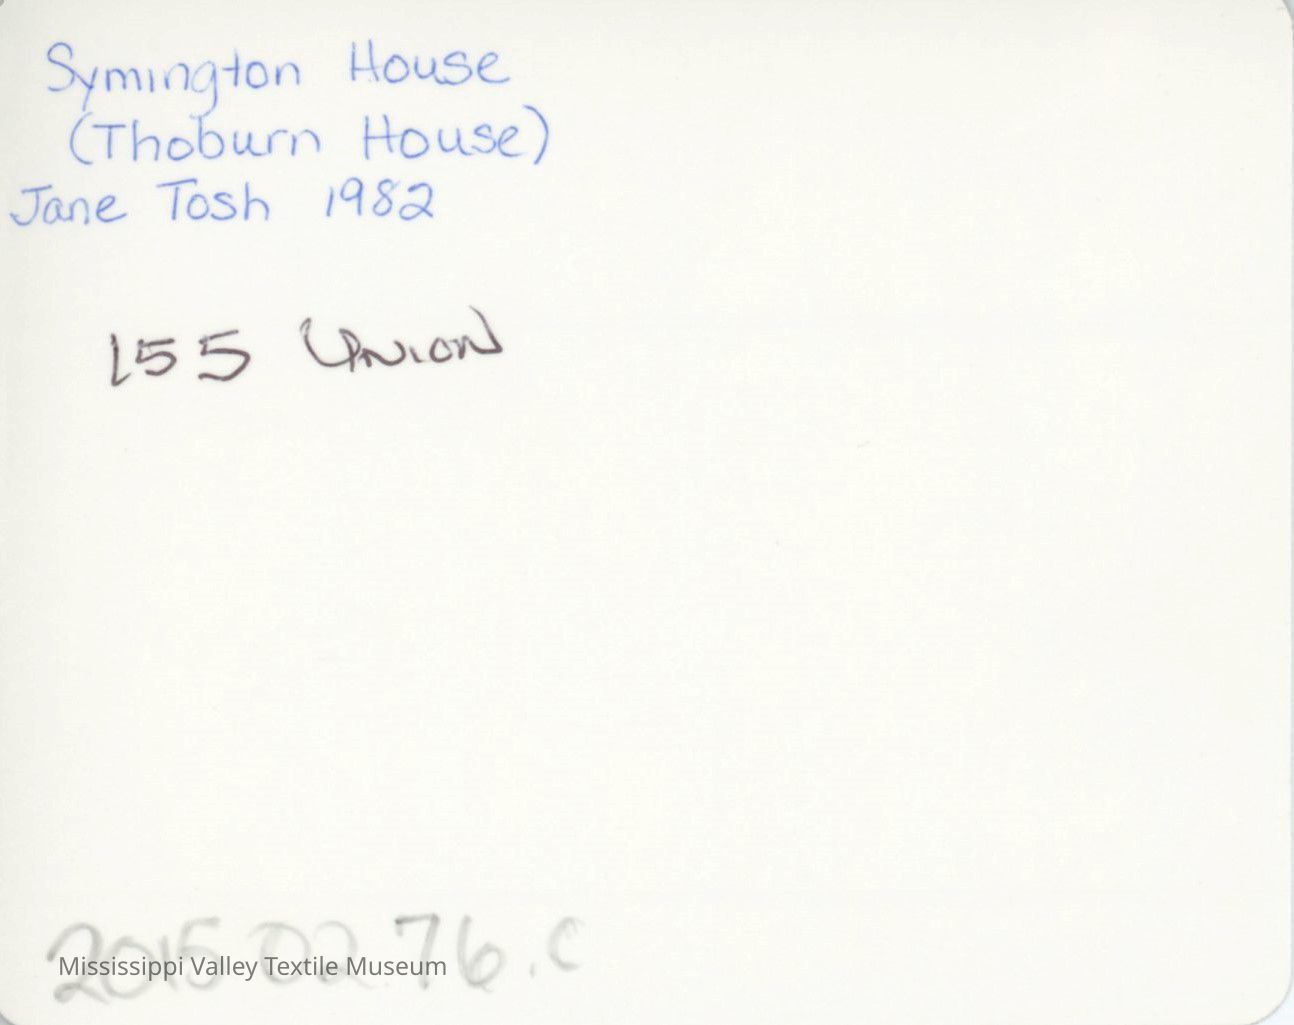 Symington House
(Thoburn House)
Jane Tosh 1982
155 Union
2015 02 76.c
Mississippi Valley Textile Museum